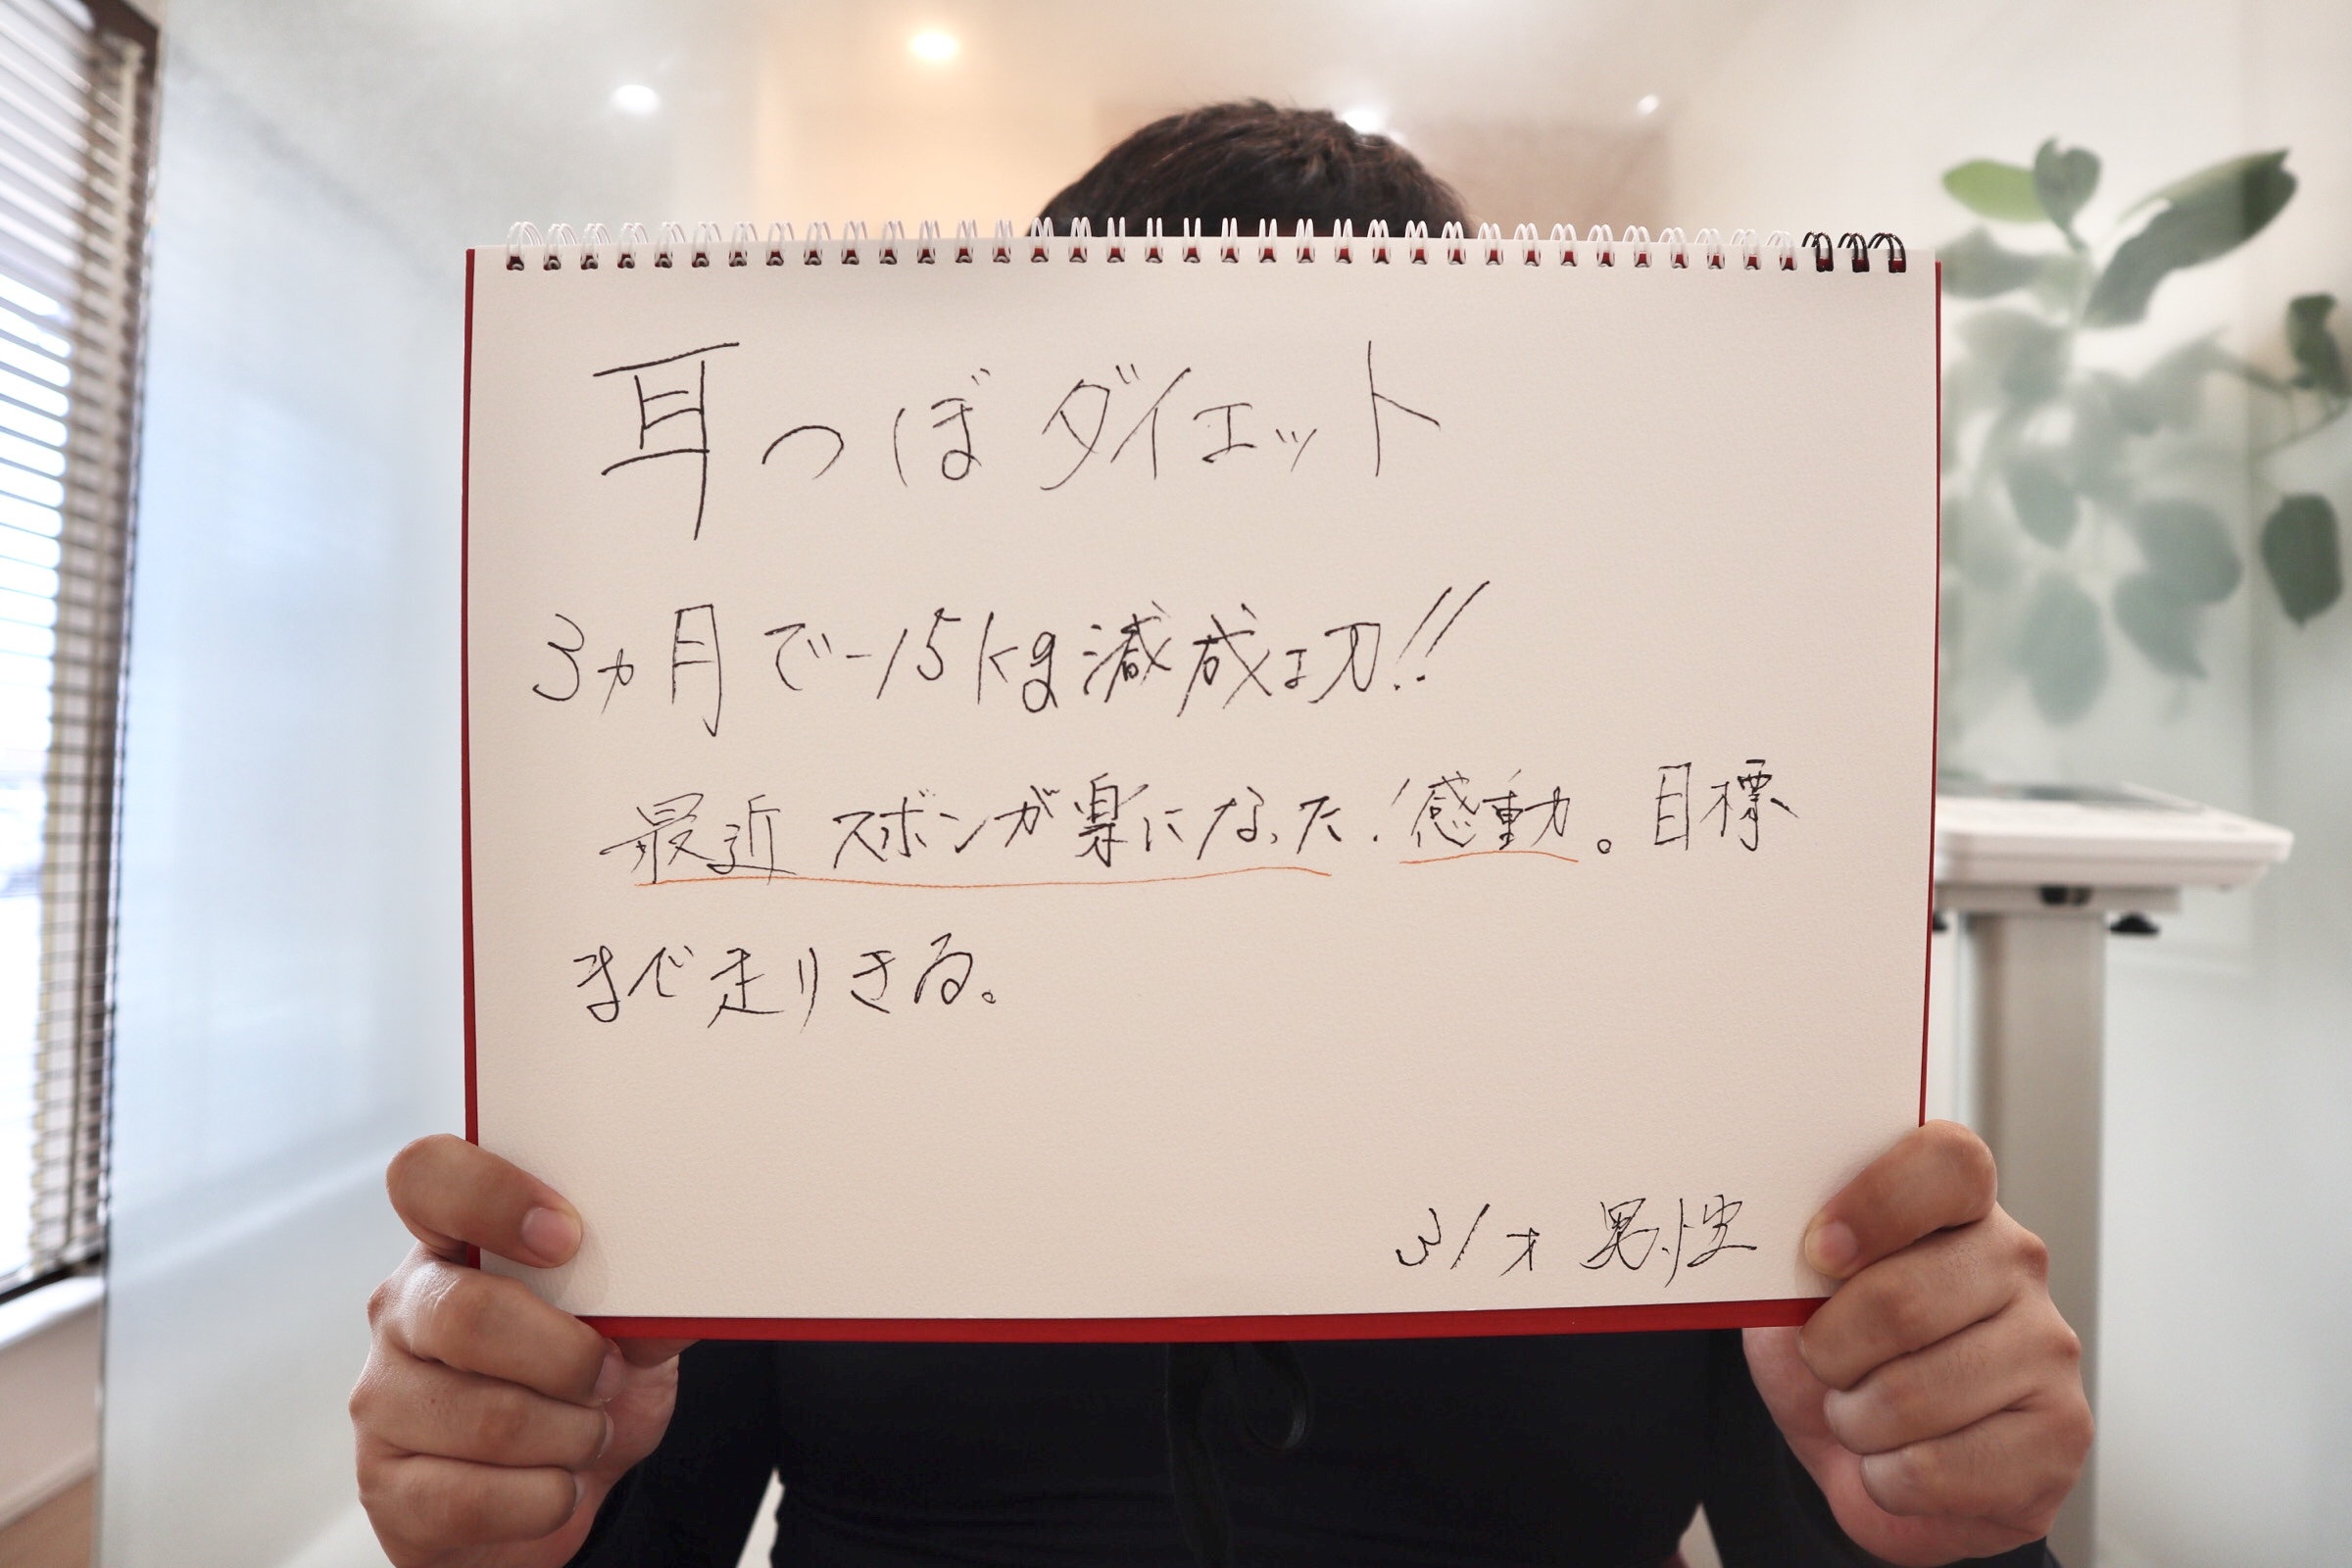 耳つぼダイエット
3ヵ月で-15kg減成功!!
最近 スボンが楽になった!感動。目標
まで走りきる。
31才 男性